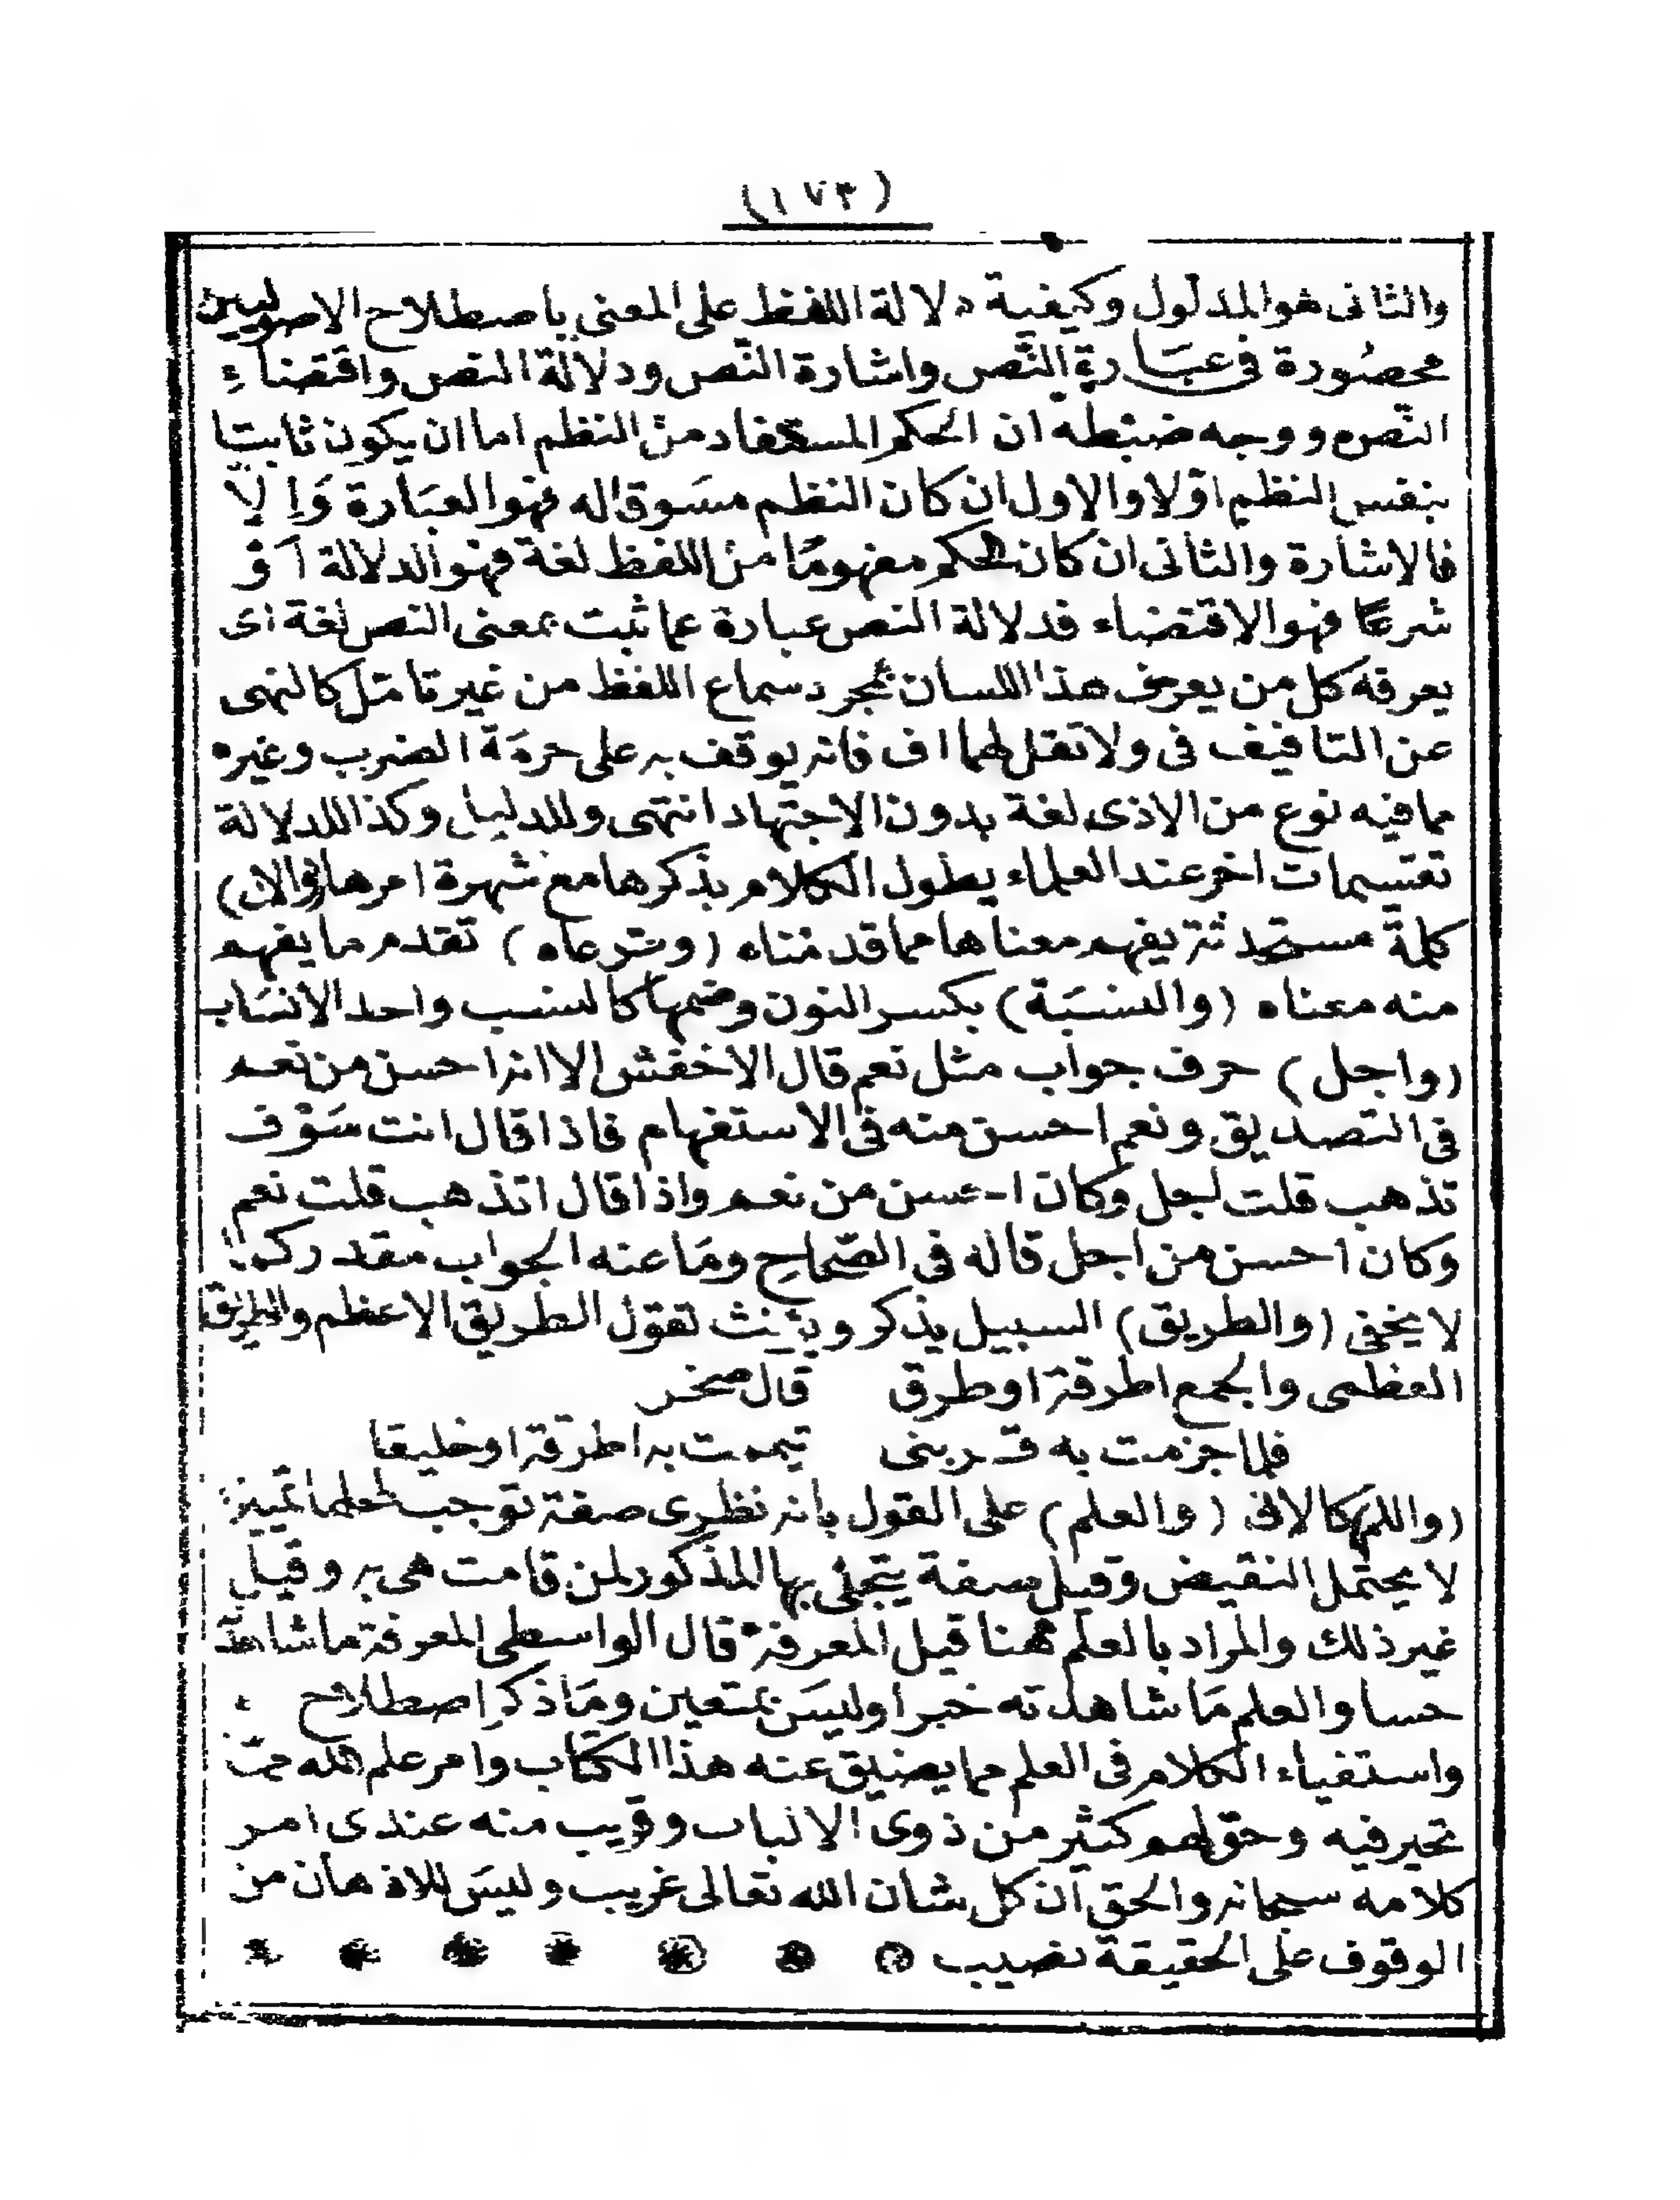 (١٧٣)
والثانى هو المدلول وكيفية دلالة اللفظ على المعنى باصطلاح الاصوليين
محصُورة فى عبَارة النّص واشارة النّص ودلالة النص واقتضاءِ
النّص ووجه ضبْطه ان الحكم المستفاد من النظم اما ان يكون ثابتا
بنفس النظم اوّلا والاول ان كان النظم مسَوقا له فهو العبَارة وَاِلّا
فالاشارة والثانى ان كان الحكم مفهومًا من اللفظ لغة فهو الدلالة اَوْ
شرعًا فهو الاقتضاء فدلالة النص عبارة عما ثبت بمعنى النص لغة اى
يعرفه كل من يعرف هذا اللسان بمجرد سماع اللفظ من غير تامّل كالنهى
عن التافيف فى ولا تقل لهما اف فانه يوقف به على حرمَة الضرب وغيره
مما فيه نوع من الاذى لغة بدون الاجتهاد انتهى وللدليل وكذا للدلالة
تقسيمات اخر عند العلماء يطول الكلام بذكرها مع شهرة امرها (والان)
كلمة يفهم معناها مما قدمناه (وشرعاه) تقدم ما يفهم
منه معناه (والنسبَة) بكسر النون وضمها كالنسب واحد الانسَاب
(واجل) حرف جواب مثل نعم قال الاخفش الا انه احسن من نعم
فى التصديق ونعم احسن منه فى الاستفهام فاذا قال انت سَوْف
تذهب قلت اجل وكان احسن من نعم واذا قال اتذهب قلت نعم
وكان احسن من اجل قاله فى الصّحاح ومَا عنه الجواب مقدر كما
لا يخفى (والطريق) السبيل يذكر ويؤنث تقول الطريق الاعظم والطريق
العظمى والجمع اطرقة او طرق قال صخر
فلما جزمت به قربتى تيممت به اطرقة او خليفا
(واللهم) كالاله (والعلم) على القول بانه نظرى صفة توجب لمحلها تمييزا
لا يحتمل النقيض وقيل صفة يتجلى بها المذكور لمن قامت هى به وقيل
غير ذلك والمراد بالعلم ههنا قيل المعرفة قال الواسطى المعرفة ما شاهدته
حسا والعلم مَا شاهدته خبرا وليسَ بمتعين ومَا ذكر اصطلاح
واستفياء الكلام فى العلم مما يضيق عنه هذا الكتاب وامر علم الله ممّا
تحير فيه وحق لهم كثير من ذوى الالباب وقريب منه عندى امر
كلامه سبحانه والحق ان كل شان الله تعالى غريب وليسَ للاذهان من
الوقوف على الحقيقة نصيب